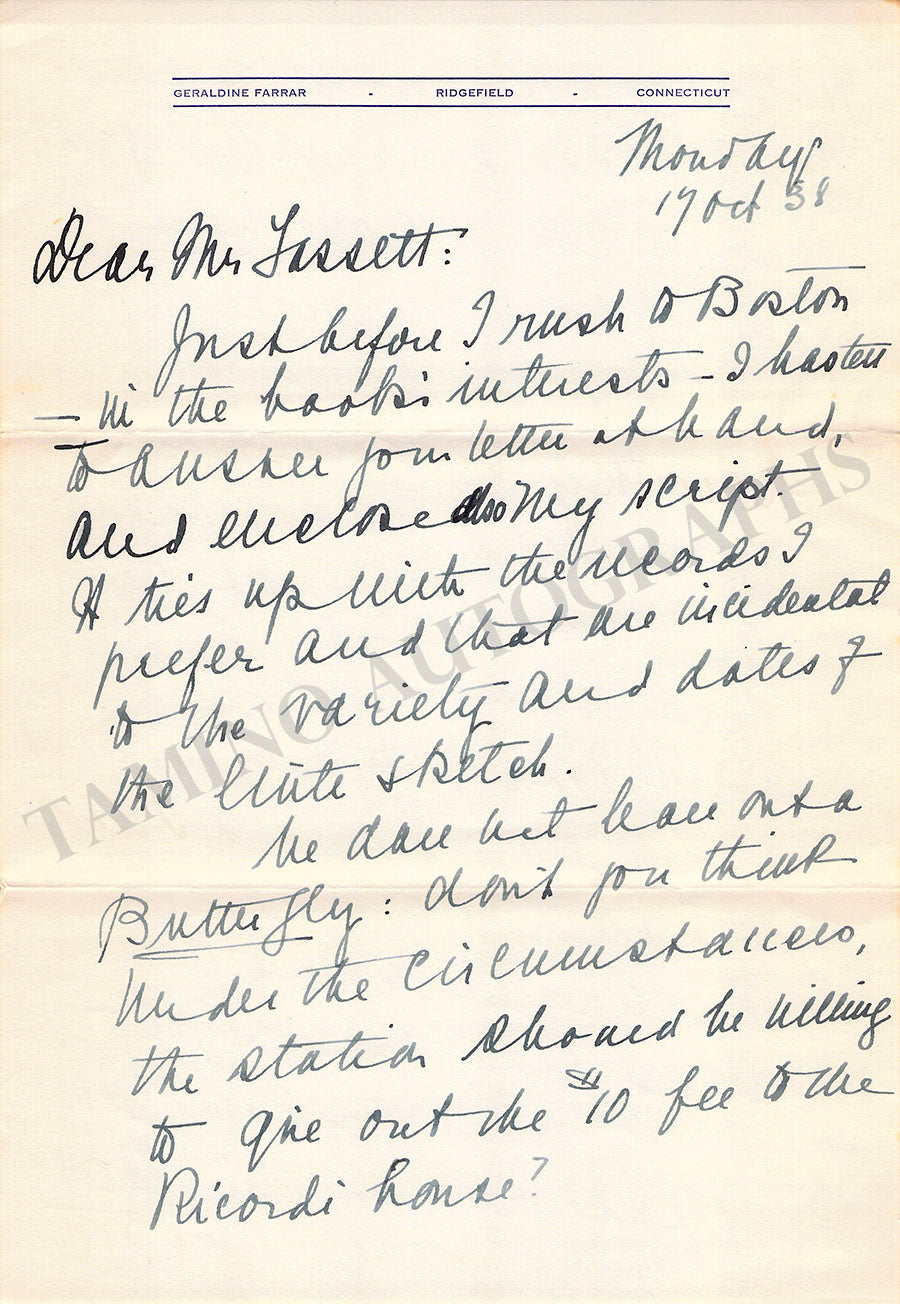 GERALDINE FARRAR - RIDGEFIELD - CONNECTICUT
Monday
17 Oct 38
Dear Mr Fassett:
Just before I rush to Boston
— in the book's interests — I hasten
to answer your letter at hand,
and enclose also my script.
It ties up with the records I
prefer and that are incidental
to the variety and dates of
the little sketch.
We dare not leave out a
Butterfly: don't you think
under the circumstances,
the station should be willing
to give out the $10 fee to the
Ricordi house?
TAMINO AUTOGRAPHS